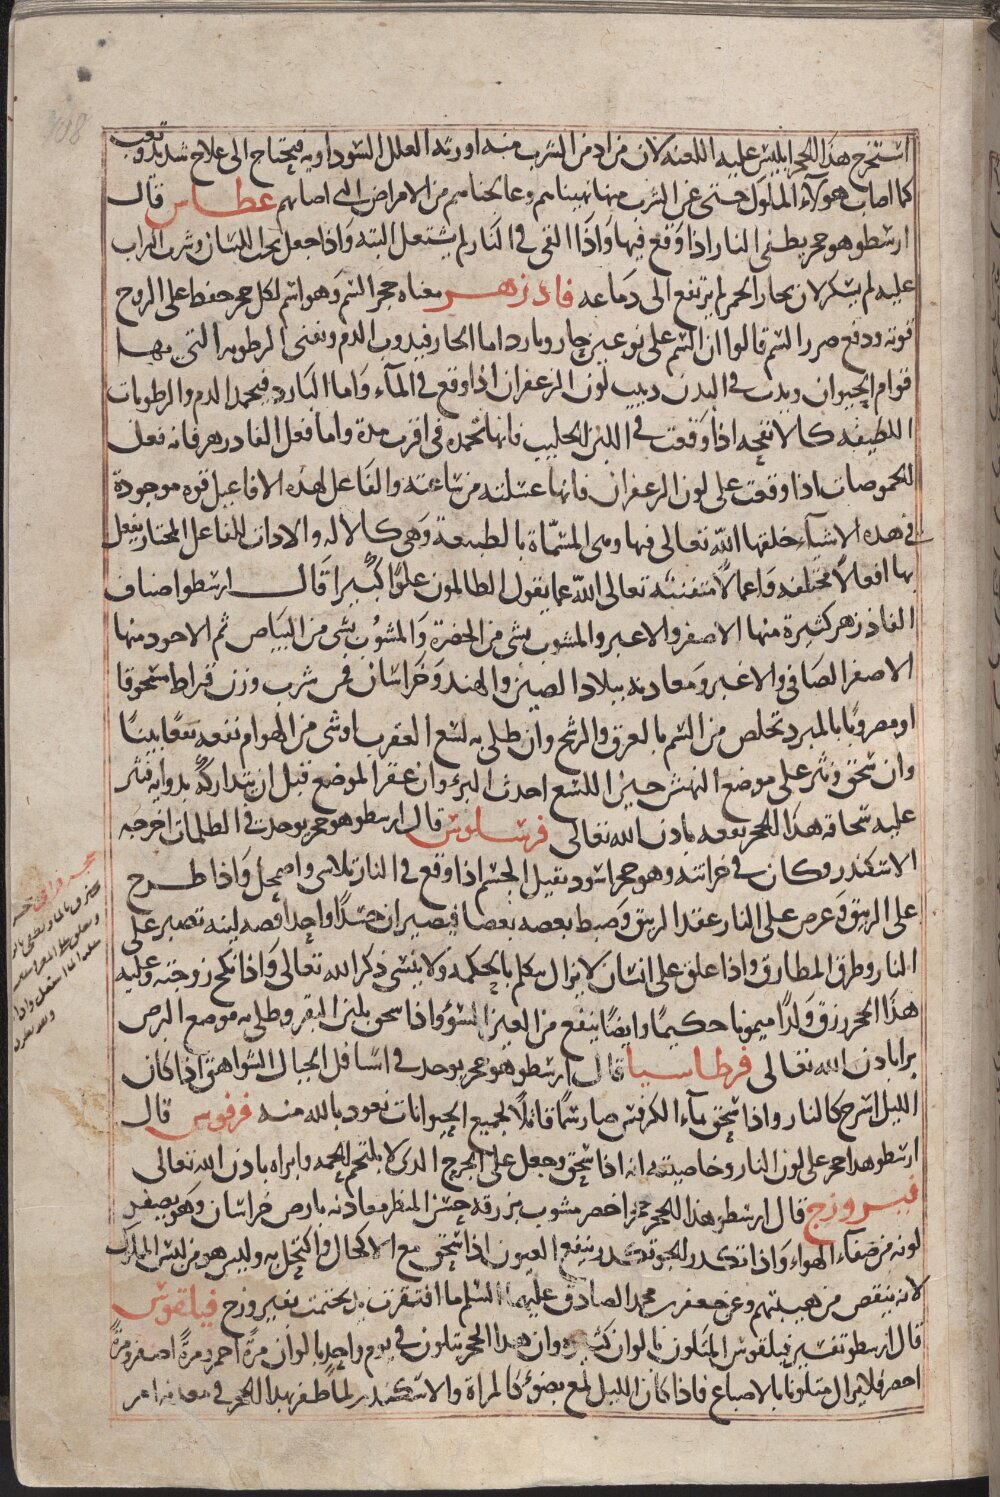 استخرج هذا الحجر ابليس عليه اللعنه لان من ادمن الشرب منه اورثه العلل السوداويه فيحتاج الى علاج شديد وتعب
كما اصاب هولاء الملوك حتى عن الشرب منها نهيناهم وعالجناهم من الامراض التى اصابهم عطاس قال
ارسطو هو حجر يطفى النار اذا وقع فيها واذا القى فى النار لم يشتعل البته واذا جعل تحت اللسان وشرب الشراب
عليه لم يسكر لان بخار الخمر لم يرتفع الى دماغه فادزهر معناه حجر السم وهو اسم لكل حجر حفظ على الروح
قوته ودفع ضرر السم قالوا ان السم على نوعين حار وبارد اما الحار فيذوب الدم ويفنى الرطوبه التى بها
قوام الحيوان ويدب فى البدن دبيب لون الزعفران اذا وقع فى المآء واما البارد فيجمد الدم والرطوبات
اللطيفه كالانفحه اذا وقعت فى اللبن الحليب فانها تجمده فى اقرب مدة واما فعل الفادزهر فانه فعل
الحموضات اذا وقعت على لون الزعفران فانها غسلته من ساعته والفاعل لهذه الافاعيل قوه موجودة
فى هذه الاشيآء خلقها الله تعالى فيها وهى المسمّاة بالطبيعة وهى كالاله والادات للفاعل المختار يفعل
بها افعالاً مختلفه واعمالاً متفننه تعالى الله عما يقول الظالمون علوًا كبيرا قال ارسطو اصناف
الفادزهر كثيرة منها الاصفر والاغبر والمشوب بشى من الخضرة والمشوب بشى من البياض ثم الاجود منها
الاصفر الصافى والاغبر ومعادنه ببلاد الصين والهند وخراسان فمن شرب وزن قيراط مسحوقا
او مضروبًا بالمبرد تخلص من السم بالعرق والرشح وان طلى به لسع العقرب او شى من الهوام نفعه نفعًا بينًا
وان سحق ونثر على موضع النهش حين اللسع احدث البرء وان عقر الموضع قبل ان يتداركه بدوايه فنثر
عليه سحاقه هذا الحجر نفعه باذن الله تعالى فرسلوس قال ارسطو هو حجر يوجد فى الظلمات اخرجه
الاسكندر وكان فى خزانته وهو حجر اسود ثقيل الجسم اذا وقع فى النار تلاشى واضمحل واذا طرح
على الزيبق وعرض على النار عقد الزيبق وضبط بعضه بعضا فيصيران جسدًا واحدا فضه لينه تصبر على
النار وطرق المطارق واذا علق على انسان لا يزال يتكلم بالحكمه ولا ينسى ذكر الله تعالى واذا نكح زوجته وعليه
هذا الحجر رزق ولدًا ميمونا حكيمًا وايضًا ينفع من العين السوء واذا سحق بلبن البقر وطلى به موضع البرص
برا باذن الله تعالى فرطاسيا قال ارسطو هو حجر يوجد فى اسافل الجبال الشواهق اذا كان
الليل اسرج كالنار واذا سحق بمآء الكرفس صار سمًا قاتلًا لجميع الحيوانات نعوذ بالله منه فرفوس قال
ارسطو هذا حجر على لون النار وخاصيته انه اذا سحق وجعل على الجرح الذى لا يلتحم الحمه وابراه باذن الله تعالى
فيروزج قال ارسطو هذا الحجر حجر اخضر مشوب بزرقه حسن المنظر معادنه بارض خراسان وهو يصفى
لونه من صفآء الهواء واذا تكدر الجو تكدر ينفع العيون اذا سحق مع الاكحال واكتحل به وليس هو من لبس الملوك
لانه ينقص من هيبتهم وعن جعفر بن محمد الصادق عليهما السلم ما افتقرت يد تختمت بفيروزج فيلقوس
قال ارسطو تفسير فيلقوس المتلون بالوان كثيره وان هذا الحجر يتلون فى يوم واحد بالوان مرةً احمر ومرةً اصفر ومرةً
اخضر فلا يزال متلونا بالاصباغ فاذا كان الليل لمع بضوء كالمراة والاسكندر لما ظفر بهذا الحجر فى معادنه امر